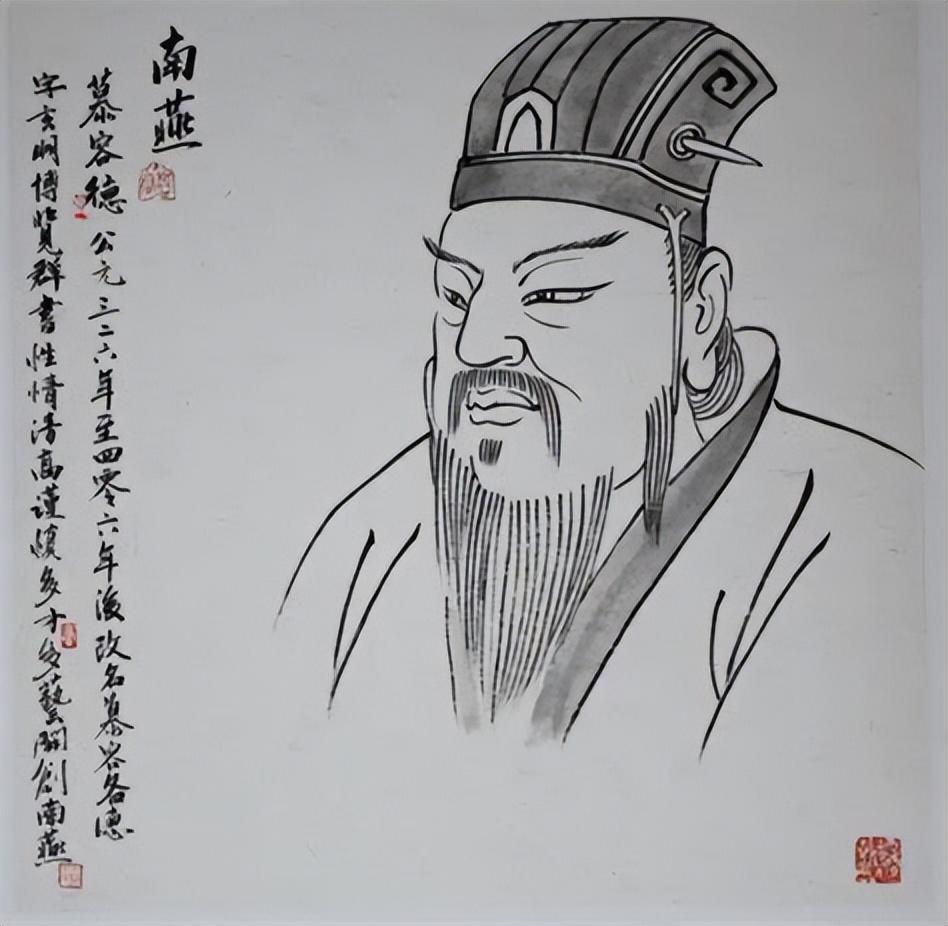 南燕
慕容德公元三二六年至四零六年後改名慕容备德
字玄明博覽群書性情清高谨慎多才多藝開創南燕